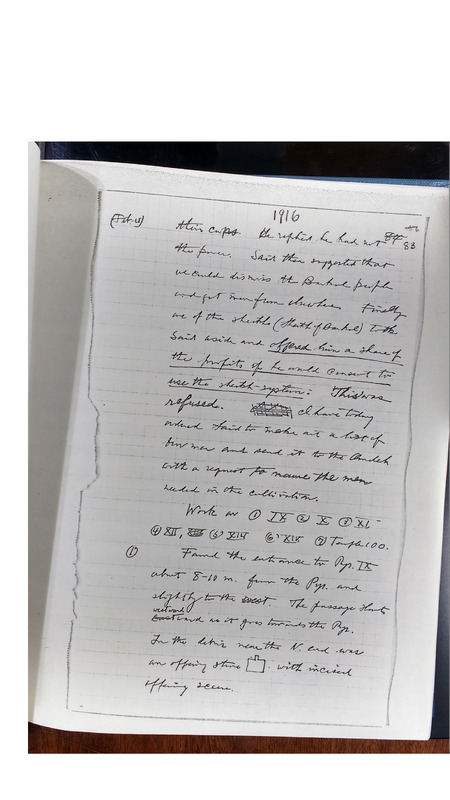 1916
(Feb. 4) their caps. He replied he had not 84 83
the power. Said then suggested that
we could dismiss the Barkal people
and get men from elsewhere. Finally
one of the sheikhs ( of Barkal) took
Said aside and offered him a share of
the profits if he would consent to
use the sheikh-system. This was
refused. I have today
ordered Said to make out a list of
our men and send it to the
with a request to name the men
needed in the cultivation.
Work on ① IX ② X ③ XI
④ XII, XIII ⑤ XIV ⑥ XIX ⑦ Temple 100.
① Found the entrance to Pyr. IX
about 8-10 m. from the Pyr. and
slightly to the west. The passage slants
westward
Eastward as it goes towards the Pyr.
In the debris near the N. end was
an offering stone with incised
offering scene.